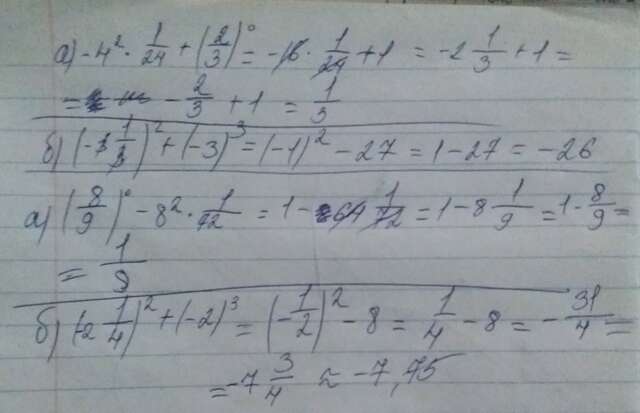 а) -4² · 1/24 + (2/3)⁰ = -16 · 1/24 + 1 = -2 1/3 + 1 =
= - 2/3 + 1 = 1/3
б) (-3 1/3)² + (-3)³ = (-1)² - 27 = 1 - 27 = -26
а) (8/9)⁰ - 8² · 1/72 = 1 - 64 1/72 = 1 - 8 1/9 = 1 - 8/9 =
= 1/9
б) (-2 1/4)² + (-2)³ = (-1/2)² - 8 = 1/4 - 8 = - 31/4 =
= -7 3/4 ≈ -7,75